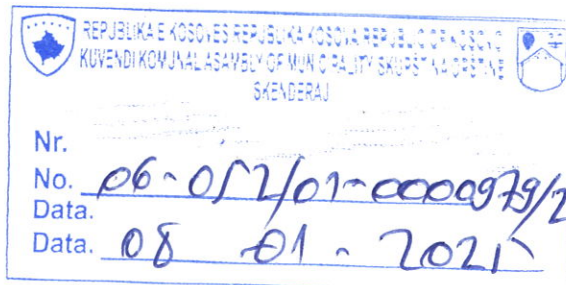 REPUBLIKA E KOSOVËS REPUBLIKA KOSOVA REPUBLIC OF KOSOVO
KUVENDI KOMUNAL ASAMBLY OF MUNICIPALITY SKUPŠTINA OPŠTINE
SKENDERAJ
Nr.
No. 06-052/01-0000979/2
Data.
Data. 08-01-2025